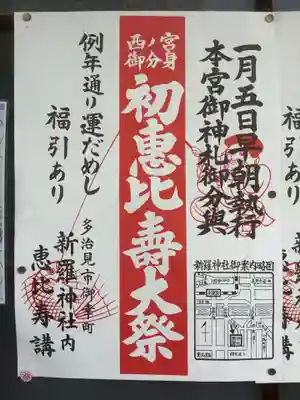 一月五日早朝執行
本宮御神札御分與
新羅神社御案内略図
西ノ宮
御分身
初恵比壽大祭
例年通り運だめし
福引あり
福引あり
多治見市御幸町
新羅神社内
恵比寿講